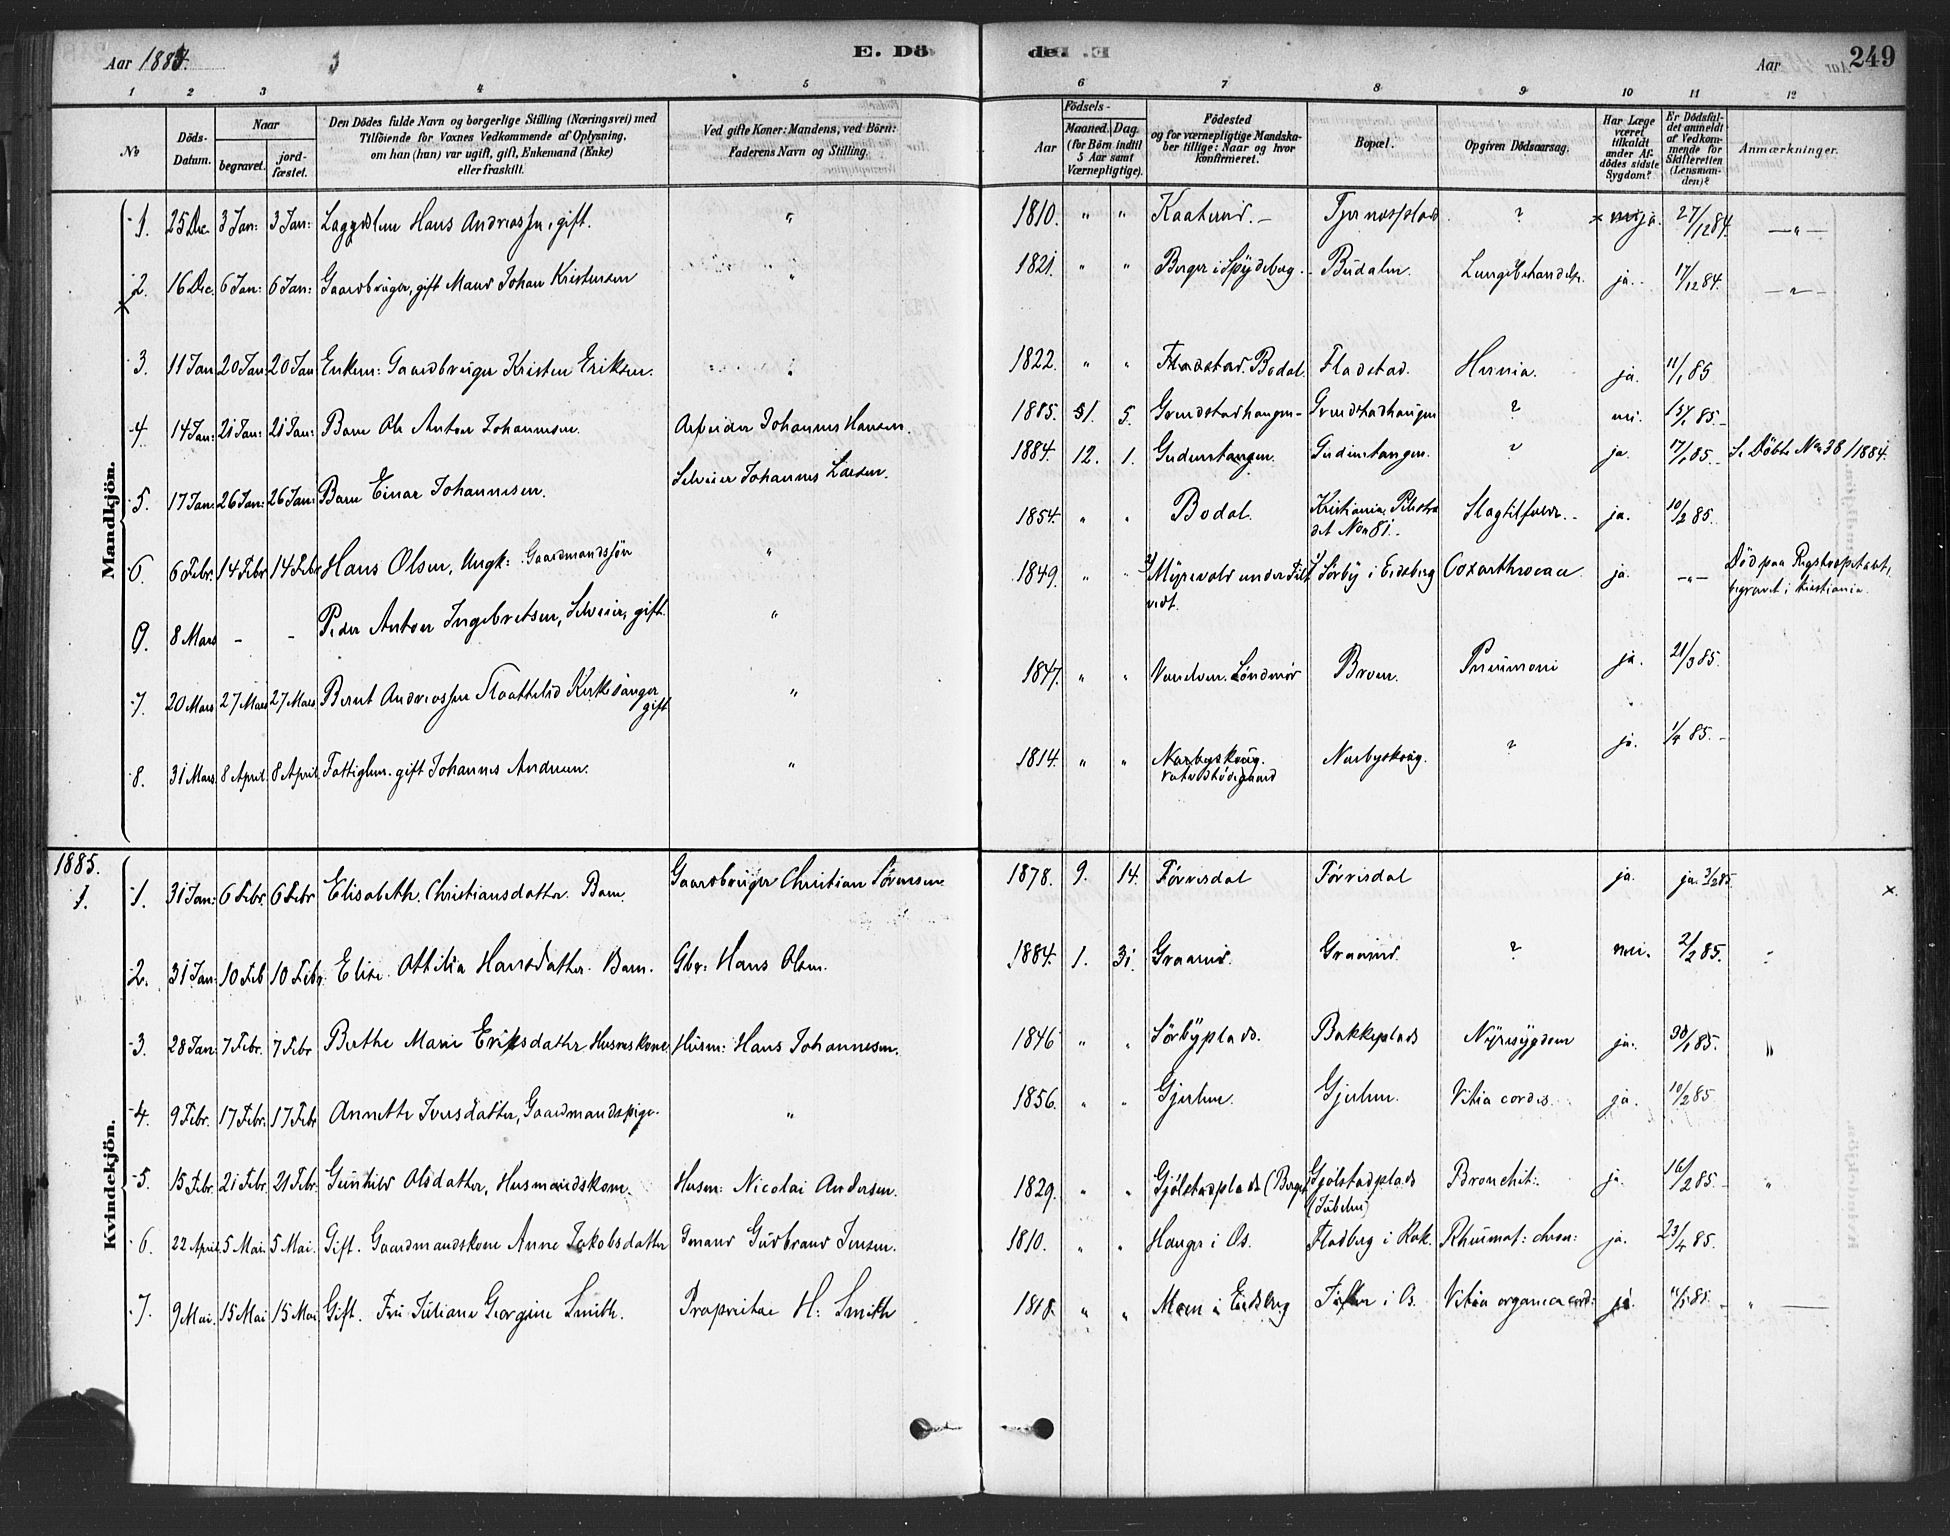 Aar 1885.
E. Dö
de.
Aar
249
1 2 3 4 5 6 7 8 9 10 11 12
No
Döds-Datum.
Naar
begravet.
jord-fæstet.
Den Dödes fulde Navn og borgerlige Stilling (Næringsvei) med
Tilföiende for Voxnes Vedkommende af Oplysning,
om han (hun) var ugift, gift, Enkemand (Enke)
eller fraskilt.
Ved gifte Koner: Mandens, ved Börn:
Faderens Navn og Stilling.
Födsels-
Aar
Maaned. Dag.
(for Börn indtil
5 Aar samt
Værnepligtige).
Födested
og for værnepligtige Mandska-
ber tillige: Naar og hvor
konfirmeret.
Bopæl.
Opgiven Dödsaarsag.
Har Læge
været
tilkaldt
under Af-
dödes sidste
Sygdom?
Er Dödsfal-
det anmeldt
af Vedkom-
mende for
Skifteretten
(Lensman-
den)?
Anmærkninger.
Mandkjön.
1. 25 Dec. 3 Jan: 3 Jan: Hans Andreassen, gift. " 1810. " " ? ja. 27/12 84. —"—
2. 16 Dec. 6 Jan: 6 Jan: Gaardbruger, gift Mand Johan Kristensen " 1821. " " Berger i Spydeberg. Budalen. ja. 17/12 84. —"—
3. 11 Jan 20 Jan: 20 Jan Enkem: Gaardbruger Kristen Eriksen. " 1822. " " Fladstad. Bodal. Fladstad. Hernia. ja. 11/1 85
4. 14 Jan: 21 Jan: 21 Jan: Barn Ole Anton Johannesen. Arbeider Johannes Hansen. 1885. 1. 5. Grendstadhaugen Grendstadhaugen ? nei. 15/1 85.
5. 17 Jan: 26 Jan: 26 Jan: Barn Einar Johannesen. Selveier Johannes Larsen. 1884. 12. 1. Gudenstangen. Gudenstangen. ? ja. 17/1 85. Se Döbte No 38/1884.
6. 6 Febr. 14 Febr 14 Febr Hans Olsen, Ungk: Gaardmandssön " 1854. " " Bodal. Kristiania, Pilestra
det No 81. Slagtilfælde. ja. 10/2 85.
9. 8 Mars - - Peder Anton Ingebretsen, Selveier, gift. " 1849. " " Myrevold under Sörby i Eidsberg Coxarthrocace ja. —"— Död paa Rigshospitalet,
begravet i Kristiania.
7. 20 Mars 27 Mars 27 Mars Bernt Andreassen Kirkesanger
gift " 1847. " " Söndmör Broen. Pneumoni ja. 21/3 85.
8. 31 Mars 8 April. 8 April. Fattiglem. gift Johannes Andersen. " 1814. " " Narbyskoug. Narbyskoug. ? ja. 1/4 85.
1885.
1.
Kvindekjön.
1. 31 Jan: 6 Febr. 6 Febr Elisabeth Christiansdatter. Barn. Gaardbruger Christian Sörensen. 1878. 9. 14. Törrisdal Törrisdal ja. ja. 2/2 85. x.
2. 31 Jan: 10 Feb 10 Febr. Elise Othilia Hansdatter. Barn. Gbr: Hans Olsen. 1884. 1. 31. ? nei. 2/2 85. "
3. 28 Jan: 7 Febr. 7 Febr Berthe Marie Eriksdatter Husmkone. Husm: Hans Johannesen. 1846 " " Sörbyplads. Bakkeplads Nyresygdom ja. 30/1 85. "
4. 9 Febr. 17 Febr. 17 Febr Annette Iversdatter, Gaardmandspige. " 1856. " " Gjerlum. Gjerlum. Vitia cordis. ja. 10/2 85.
5. 15 Febr. 21 Febr. 21 Febr. Gunhild Olsdatter, Husmandskone. Husm: Nicolai Andersen. 1829. " " Gjölstadplads (Berger Gjölstadplads Bronchit: ja. 16/2 85. "
6. 22 April. 5 Mai. 5 Mai. Gift. Gaardmandskone Anne Jakobsdatter Gmand Gudbrand Jensen. 1810. " " Hauger i Os. Fladberg i Rak. Rheumat: chron: ja. 23/4 85.
7. 9 Mai. 15 Mai 15 Mai Gift. Fru Juliane Georgine Smith. Proprietær H: Smith 1818. " " Moen i Eidsberg i Os. Vitia organica cord: ja. 11/5 85. " —